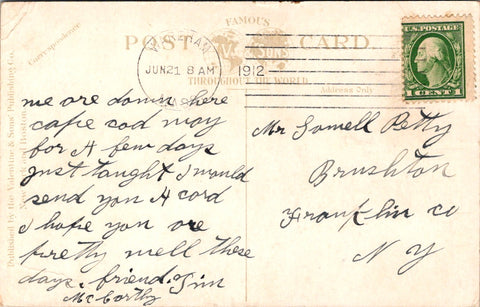 FAMOUS
POST CARD.
& SONS
THROUGHOUT THE WORLD
Correspondence
Address Only
Published by the Valentine & Sons' Publishing Co.
New York and Boston
JUN 21 8 AM
1912
MASS
U.S. POSTAGE
1 CENT 1
me are down here
cape cod may
for A few days
just taught i would
send you A cord
I hope you are
pretty well these
days. friend. Jim
McCarthy
Mr Lowell Petty
Brushton
Franklin co
N Y